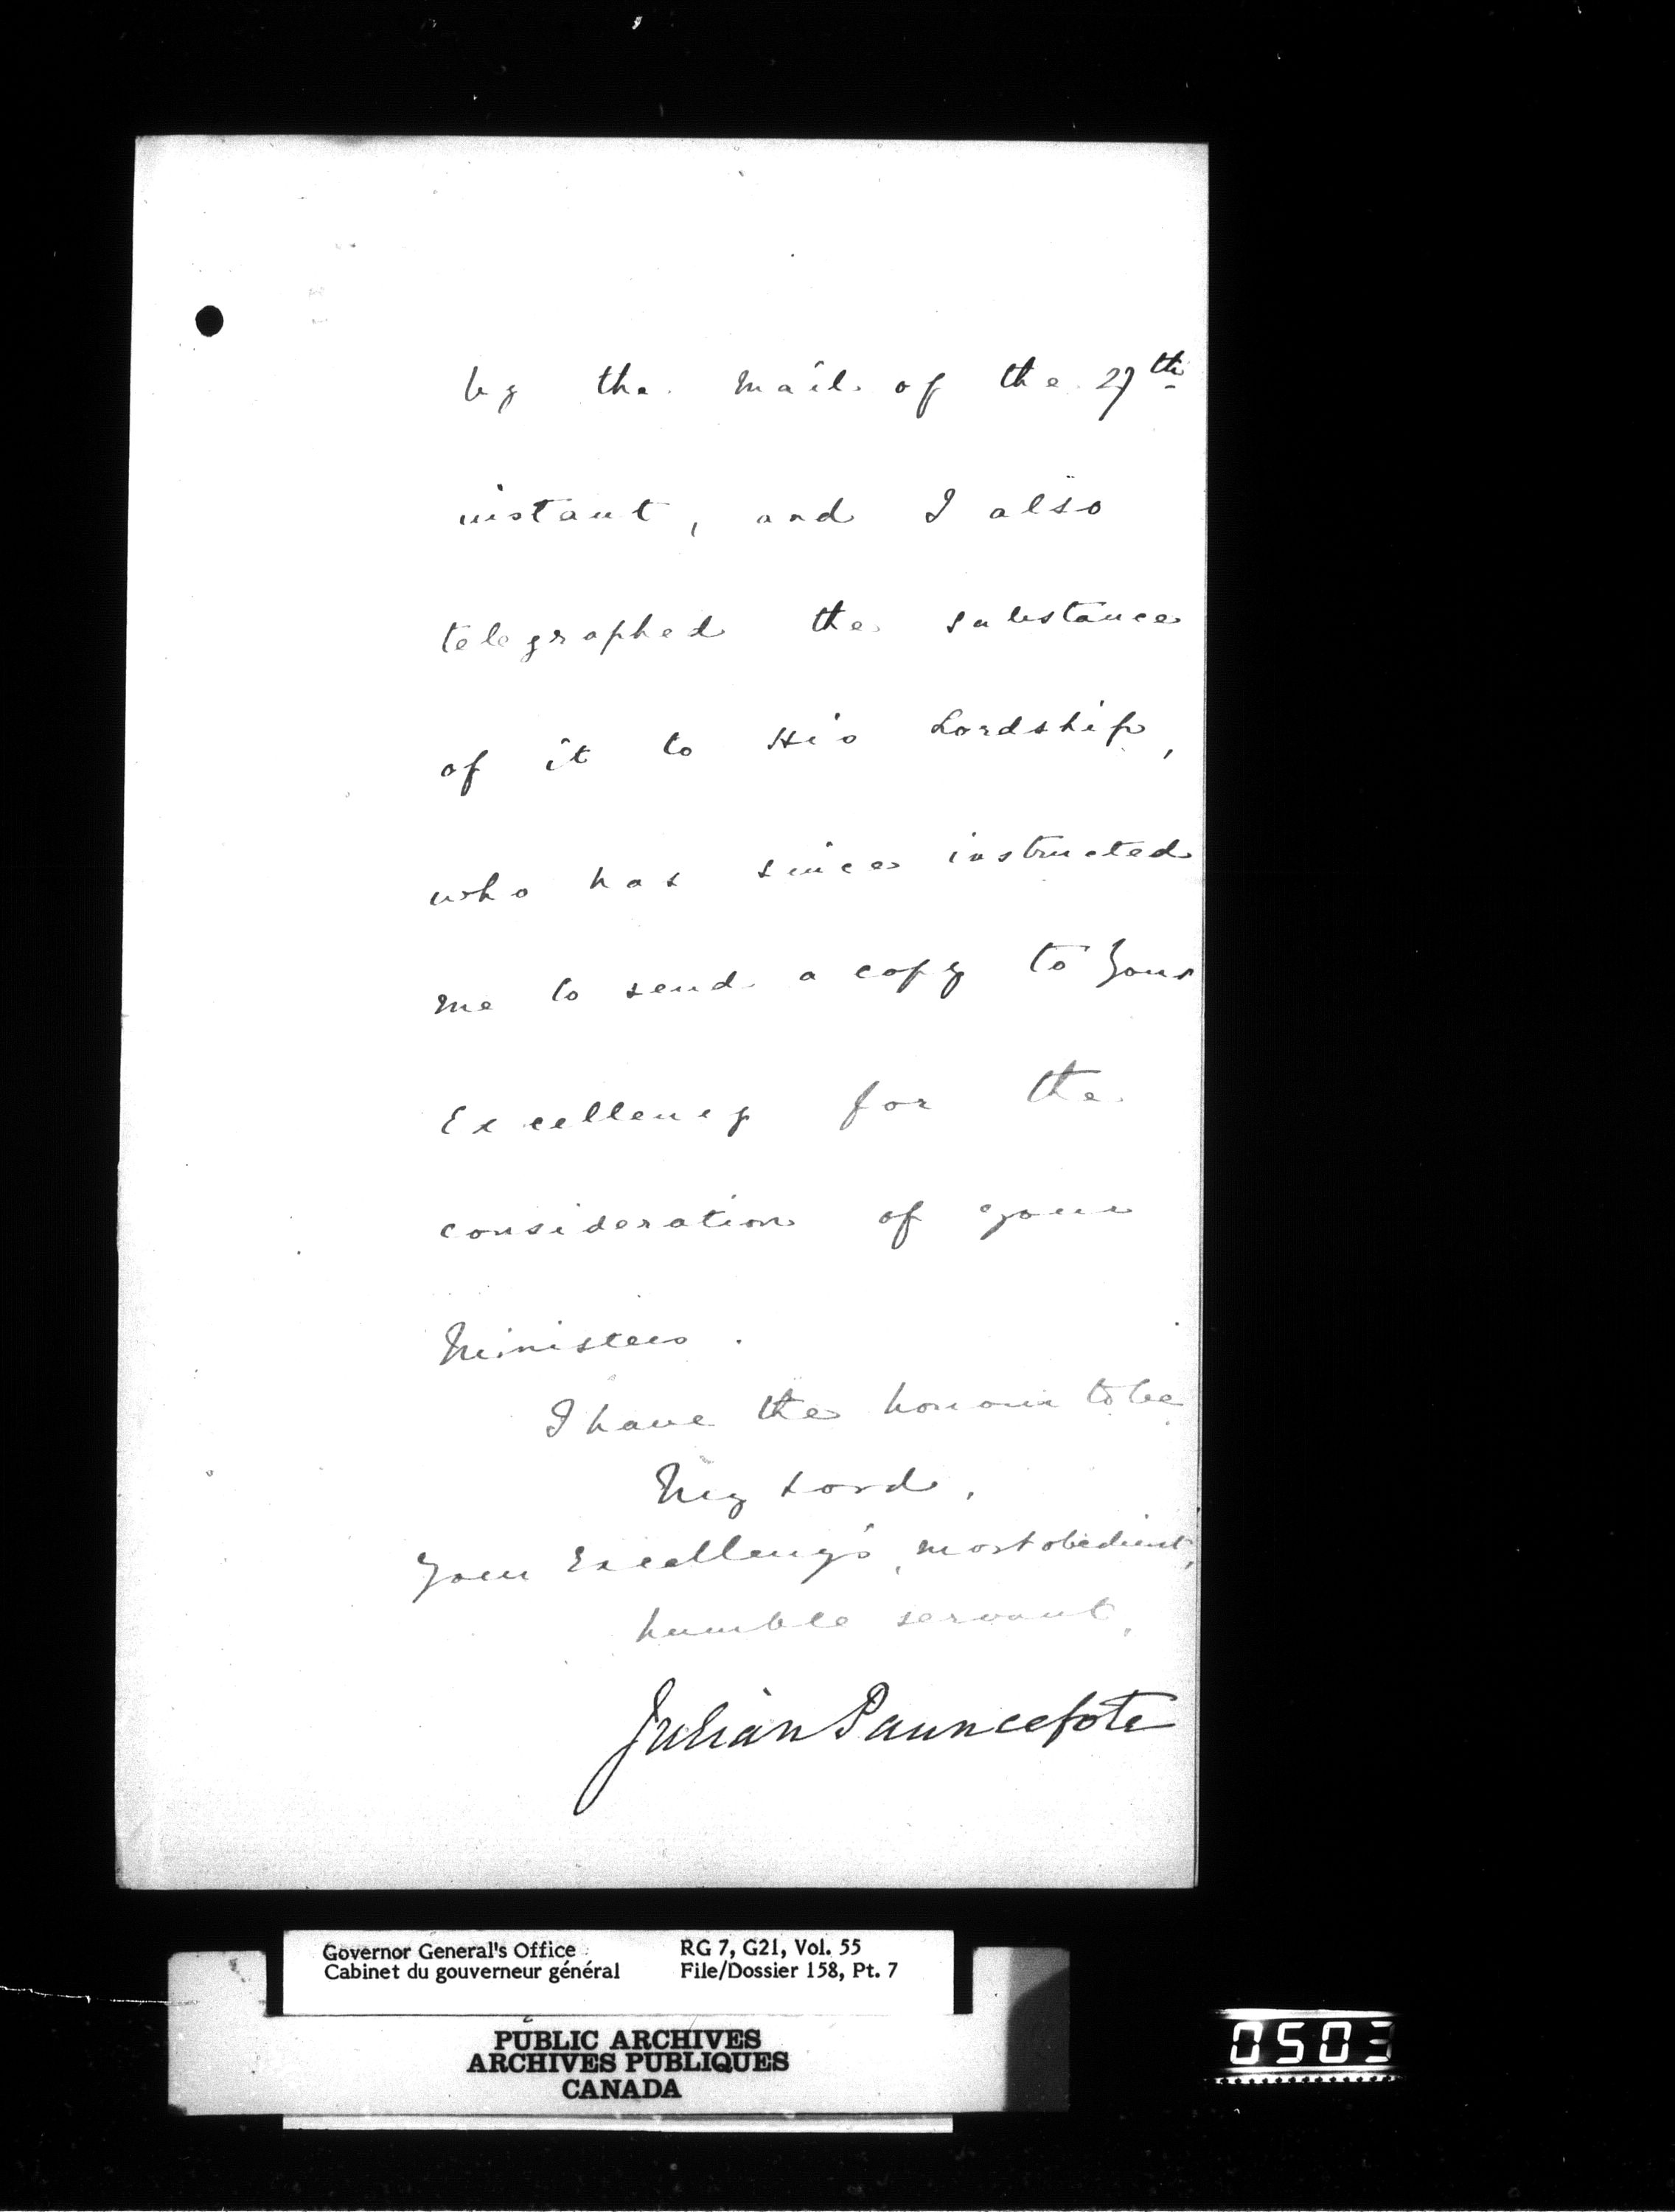 by the mail of the 27th
instant, and I also
telegraphed the substance
of it to His Lordship,
who has since instructed
me to send a copy to Your
Excellency for the
consideration of your
Ministers.
I have the honour to be
My Lord,
Your Excellency's most obedient,
humble servant,
Julian Pauncefote
Governor General's Office RG 7, G21, Vol. 55
Cabinet du gouverneur général File/Dossier 158, Pt. 7
PUBLIC ARCHIVES
ARCHIVES PUBLIQUES
CANADA
0503